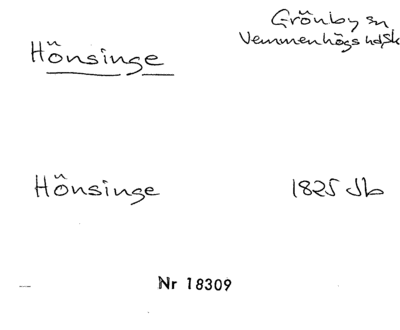 Grönby sn
Hönsinge
Vemmenhögs hd, Sk
Hönsinge
1825 Jb
Nr 18309